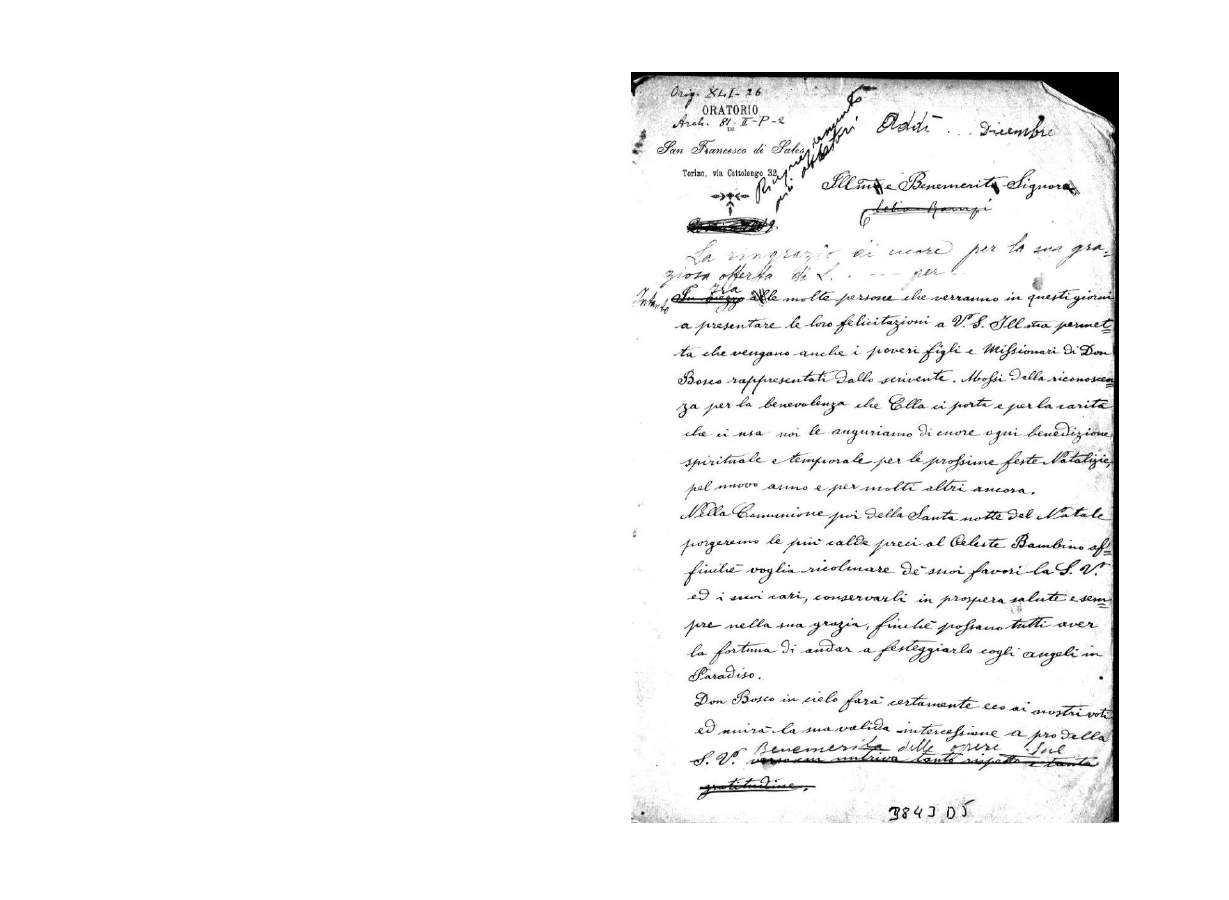 Orig. XLI-26
ORATORIO
Arch. 81-II-P-2
DI
San Francesco di Sales
Torino, via Cottolengo 32
Ringraziamento
Addì ... Dicembre
Ill.ma e Benemerita Signora
La ringrazio di cuore per la sua gra=
ziosa offerta di L. . --- per ..
Intanto fra
alle molte persone che verranno in questi giorni
a presentare le loro felicitazioni a V. S. Ill ma permet=
ta che vengano anche i poveri figli e Missionari di Don
Bosco rappresentati dallo scrivente. Mossi dalla riconoscen=
za per la benevolenza che Ella ci porta e per la carità
che ci usa noi le auguriamo di cuore ogni benedizione
spirituale e temporale per le prossime feste Natalizie,
pel nuovo anno e per molti altri ancora.
Nella Comunione poi della Santa notte del Natale
porgeremo le più calde preci al Celeste Bambino af=
finchè voglia ricolmare de' suoi favori la S. V.
ed i suoi cari, conservarli in prospera salute e sem=
pre nella sua grazia, finchè possano tutti aver
la fortuna di andar a festeggiarlo cogli angeli in
Paradiso.
Don Bosco in cielo farà certamente eco ai nostri voti
ed unirà la sua valida intercessione a pro della
Benemerita delle opere Sue
S. V. verso cui nutriva tanto rispetto e tanta
gratitudine.
3843 D5